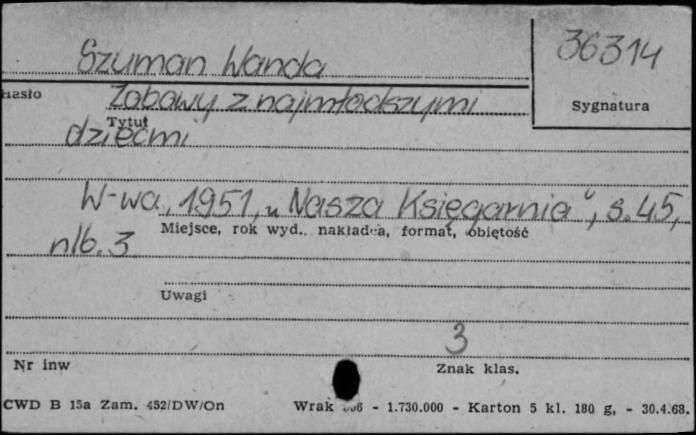 Szuman Wanda
36314
Hasło
Zabawy z najmłodszymi
Sygnatura
Tytuł
dziećmi
W-wa, 1951, „Nasza Księgarnia", s. 45,
Miejsce, rok wyd., nakładca, format, objętość
nlb. 3
Uwagi
3
Nr inw
Znak klas.
CWD B 15a Zam. 452/DW/On
Wrak - 1.730.000 - Karton 5 kl. 180 g, - 30.4.68.